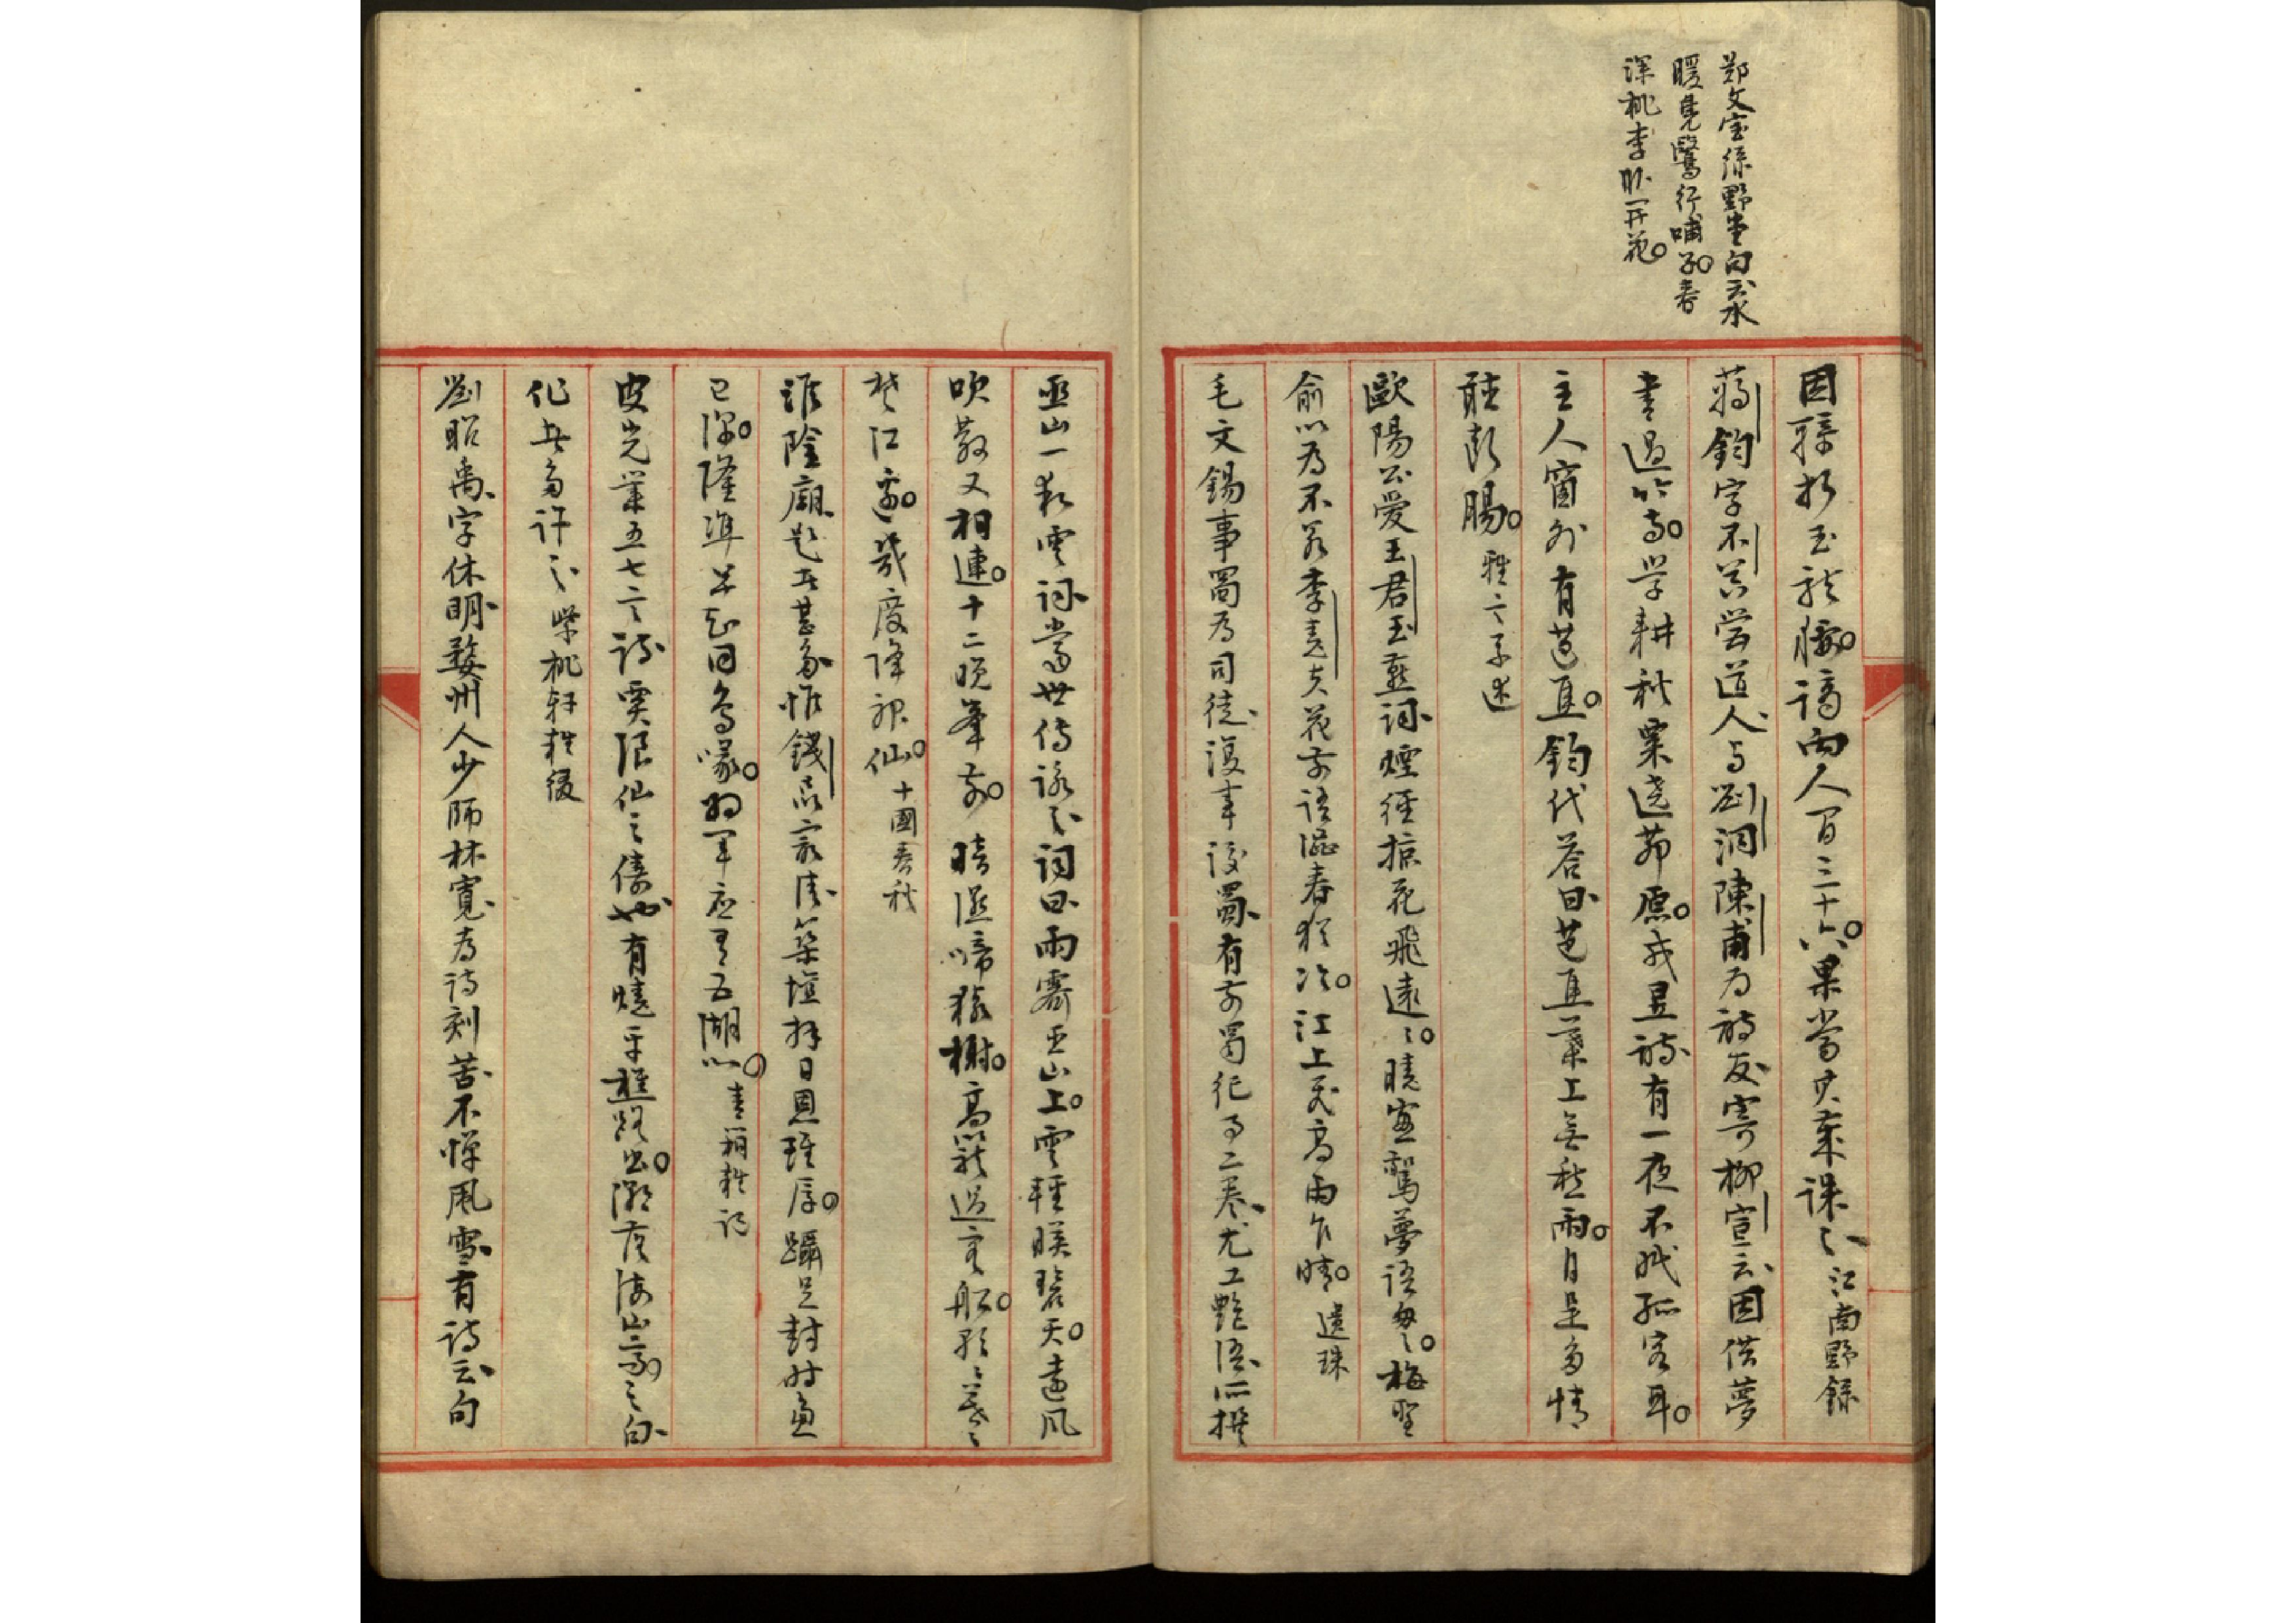 鄭文寶綠野堂句云水
暖鳧鷖行哺子春
深桃李臥開花
因騎折玉龍腰謫向人間三十六果當其棄誅之江南野錄
蔣鈞字不器營道人與劉洞陳甫為詩友寄柳宣云因借夢
書過竹寺學耕秋粟遶茆原我昱詩有一夜不眠孤客耳
主人窗外有芭蕉鈞代答曰芭蕉葉上無愁雨自是多情
聽斷腸 雅言系述
歐陽公愛王君玉燕詞煙徑掠花飛遠遠曉窗驚夢語匆匆梅聖
俞以為不若李堯夫花前語澀春猶冷江上飛高雨乍晴 遺珠
毛文錫事蜀為司徒復事後蜀有前蜀紀事二卷尤工艷語所撰
巫山一段雲詞當世傳詠之詞曰雨霽巫山上雲輕映碧天遠風
吹散又相連十二晚峯前 暗濕啼猿樹高籠過客船朝朝暮暮
楚江邊幾度降神仙 十國春秋
淮陰廟題者甚多惟錢 築壇拜日恩雖厚躡足封時慮
已深隆準早知同鳥喙將軍應有五湖心 青箱雜記
皮光業五七言詩 浪仙之儔也有燒平樵路出潮落海山高之句
化者多許之 柴桃軒雜綴
劉昭禹字休明婺州人少師林寬為詩刻苦不憚風雪有詩云句